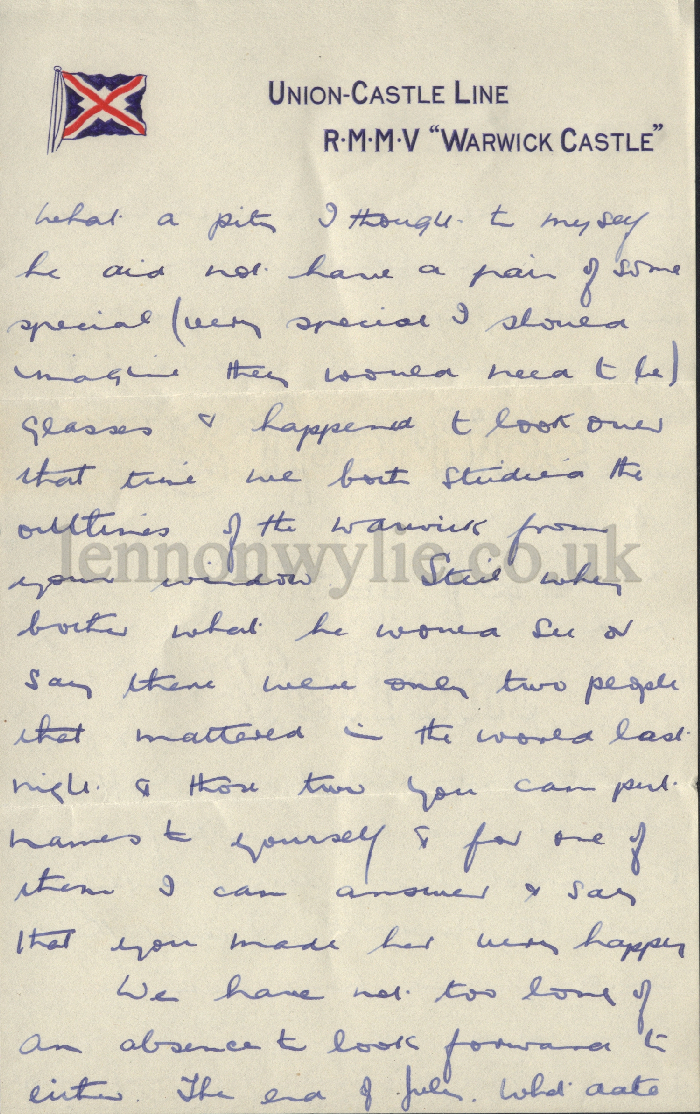 UNION-CASTLE LINE
R·M·M·V "WARWICK CASTLE"
What a pity I thought to myself
he did not have a pair of some
special (very special I should
imagine they would need to be)
glasses & happened to look over
that time we both studied the
outlines of the Warwick from
lennonwylie.co.uk
your window Still why
bother what he would see or
say there were only two people
that mattered in the world last
night & those two you can put
names to yourself & for one of
them I can answer & say
that you made her very happy
We have not too long of
an absence to look forward to
either. The end of July. What date